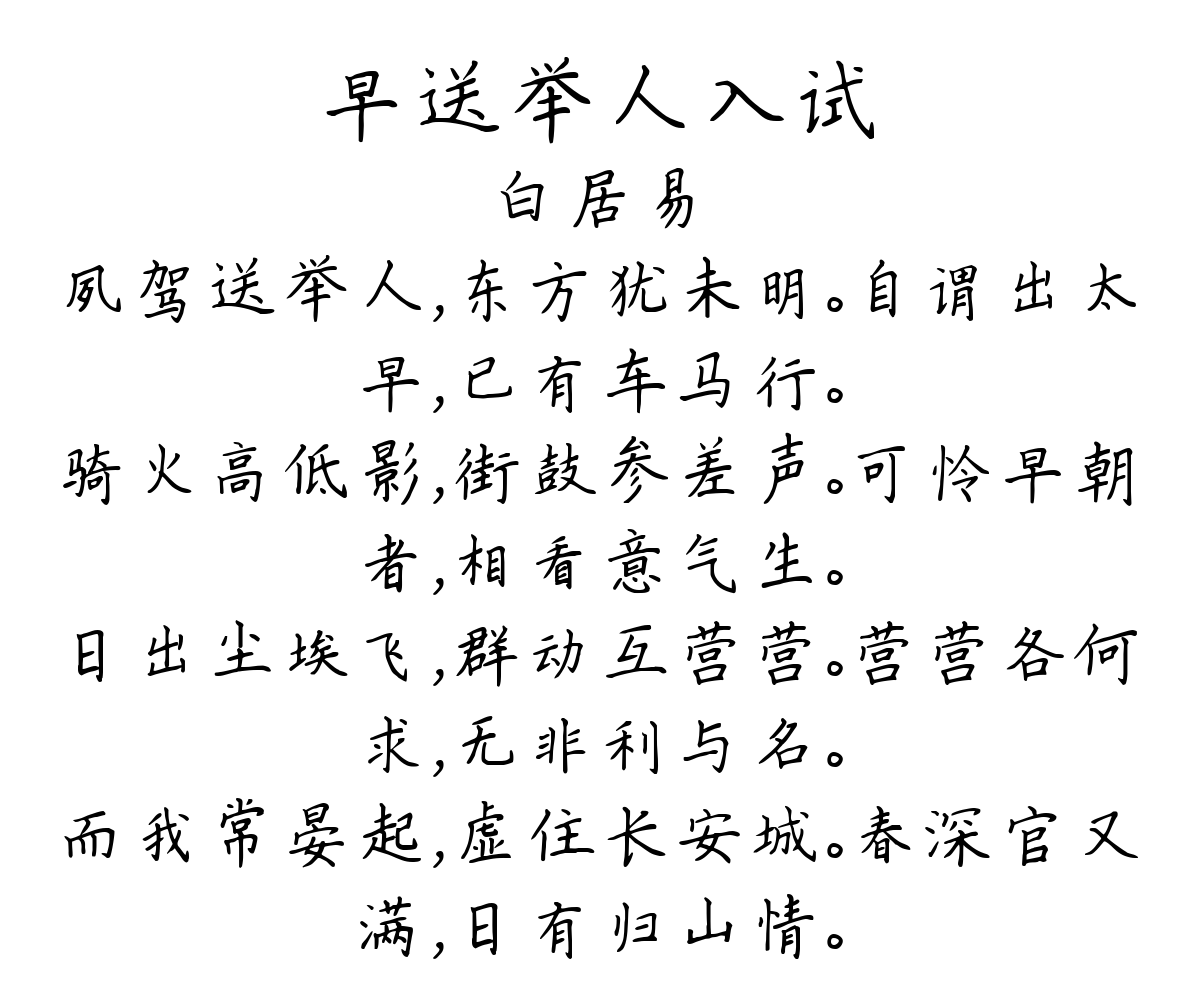 早送举人入试
白居易
夙驾送举人,东方犹未明。自谓出太
早,已有车马行。
骑火高低影,街鼓参差声。可怜早朝
者,相看意气生。
日出尘埃飞,群动互营营。营营各何
求,无非利与名。
而我常晏起,虚住长安城。春深官又
满,日有归山情。